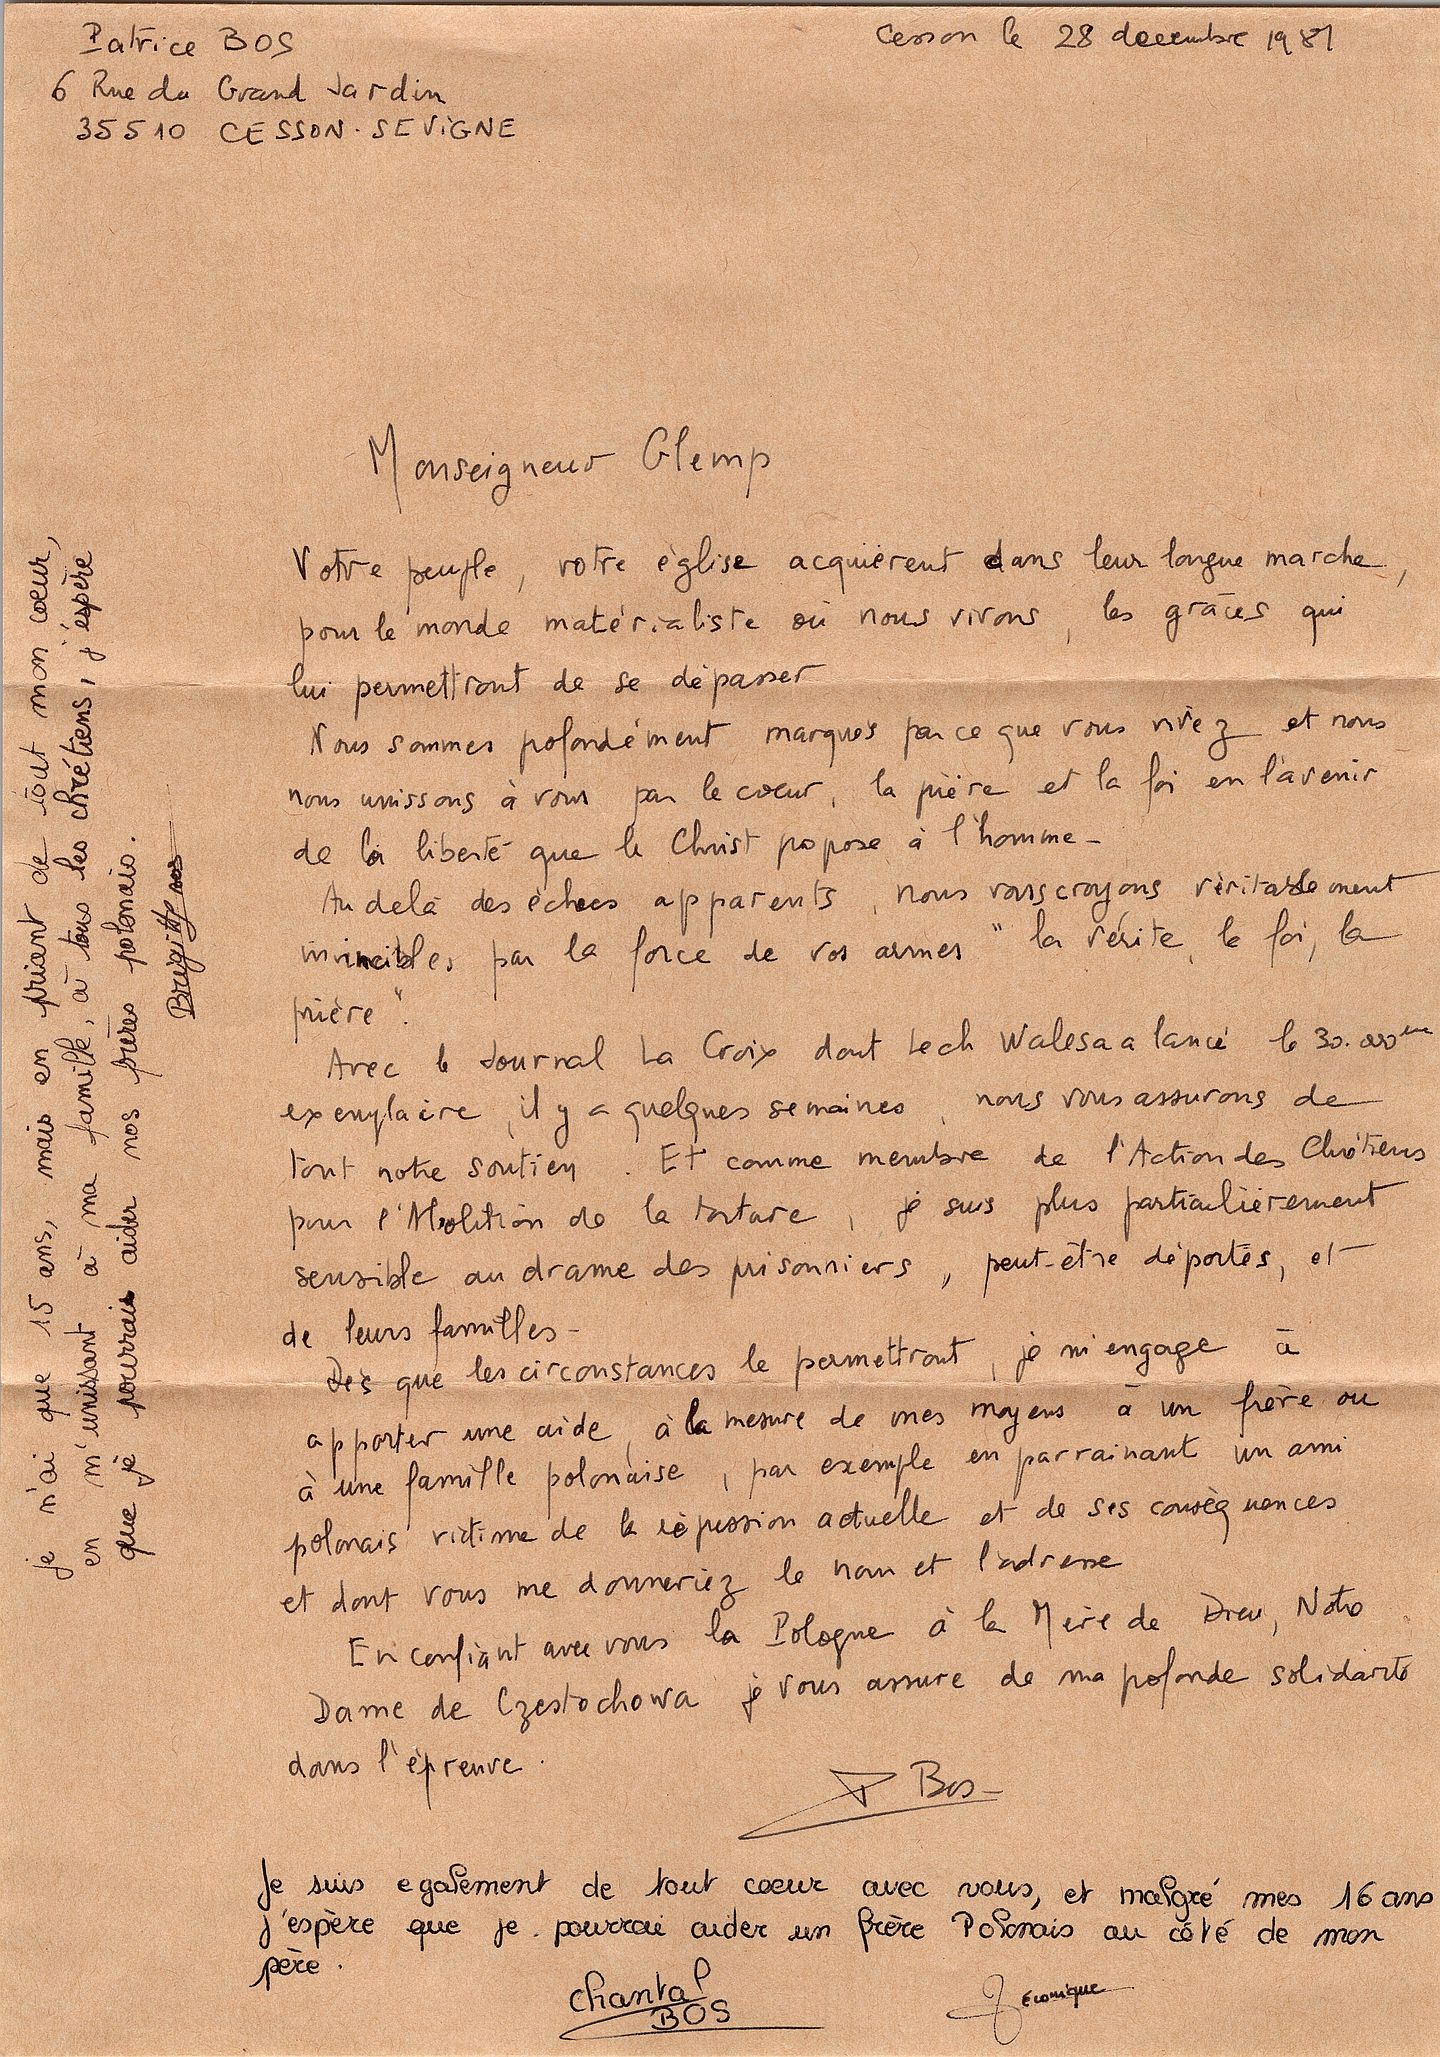 Patrice BOS
6 Rue du Grand Jardin
35510 CESSON-SEVIGNE
Cesson le 28 decembre 1981
Monseigneur Glemp
Votre peuple, votre église acquièrent dans leur longue marche,
pour le monde matérialiste où nous vivons, les grâces qui
lui permettront de se dépasser
Nous sommes profondément marqués par ce que vous vivez et nous
nous unissons à vous par le coeur, la prière et la foi en l'avenir
de la liberté que le Christ propose à l'homme -
Au delà des échecs apparents, nous vous croyons véritablement
invincibles par la force de vos armes "la vérité, la foi, la
prière".
Avec le Journal La Croix dont Lech Walesa a lancé le 30.000ème
exemplaire, il y a quelques semaines, nous vous assurons de
tout notre soutien. Et comme membre de l'Action des Chrétiens
pour l'Abolition de la torture, je suis plus particulièrement
sensible au drame des prisonniers, peut-être déportés, et
de leurs familles -
Dès que les circonstances le permettront, je m'engage à
apporter une aide, à la mesure de mes moyens à un frère ou
à une famille polonaise, par exemple en parrainant un ami
polonais victime de la répression actuelle et de ses conséquences
et dont vous me donneriez le nom et l'adresse
En confiant avec vous la Pologne à la Mère de Dieu, Notre
Dame de Czestochowa je vous assure de ma profonde solidarité
dans l'épreuve.
P Bos -
Je suis egalement de tout coeur avec vous, et malgré mes 16 ans
j'espère que je pourrai aider un frère Polonais au côté de mon
père.
Chantal
BOS
Véronique
je n'ai que 15 ans, mais en priant de tout mon coeur,
en m'unissant à ma famille, à tous les chrétiens, j'espère
que je pourrais aider nos frères polonais.
Brigitte BOS